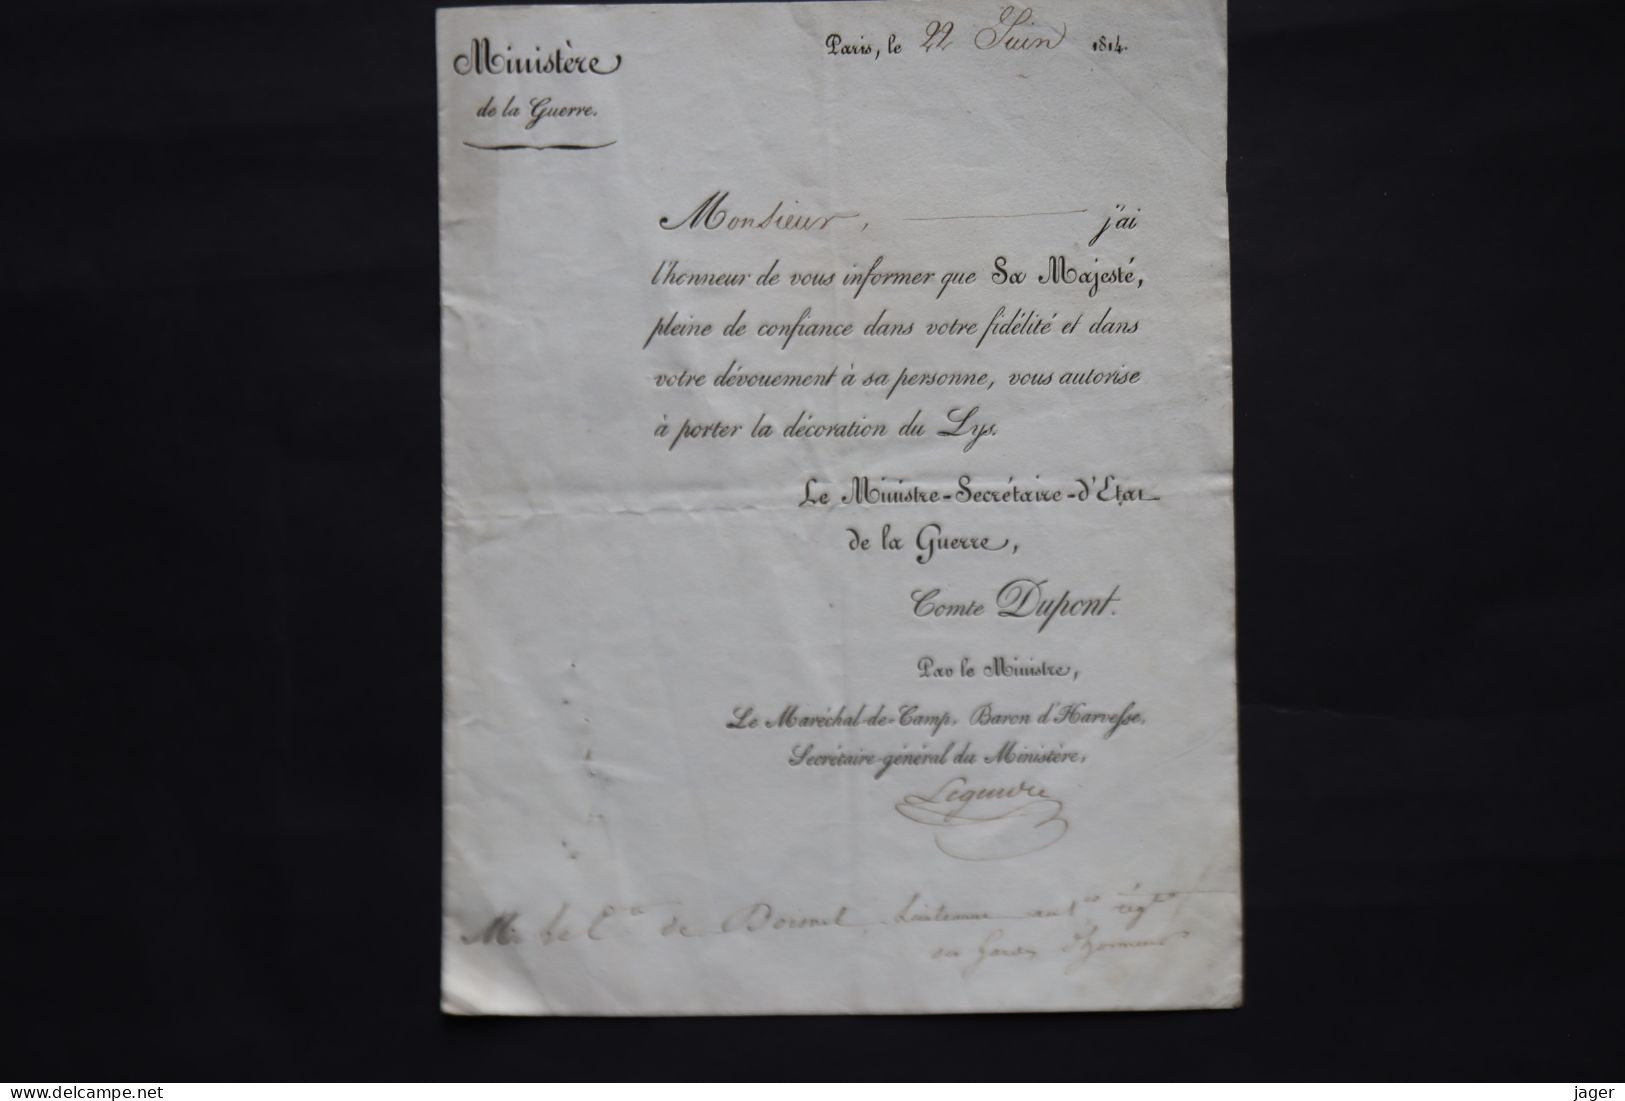 Ministère
de la Guerre.
Paris, le 22 Juin 1814.
Monsieur, j'ai
l'honneur de vous informer que Sa Majesté,
pleine de confiance dans votre fidélité et dans
votre dévouement à sa personne, vous autorise
à porter la décoration du Lys.
Le Ministre-Secrétaire-d'Etat
de la Guerre,
Comte Dupont.
Par le Ministre,
Le Maréchal-de-Camp, Baron d'Harvesse,
Secrétaire-général du Ministère,
M. le Cte de Lieutenant au 1er régt
des Gardes d'honneur
delcampe.net
jager